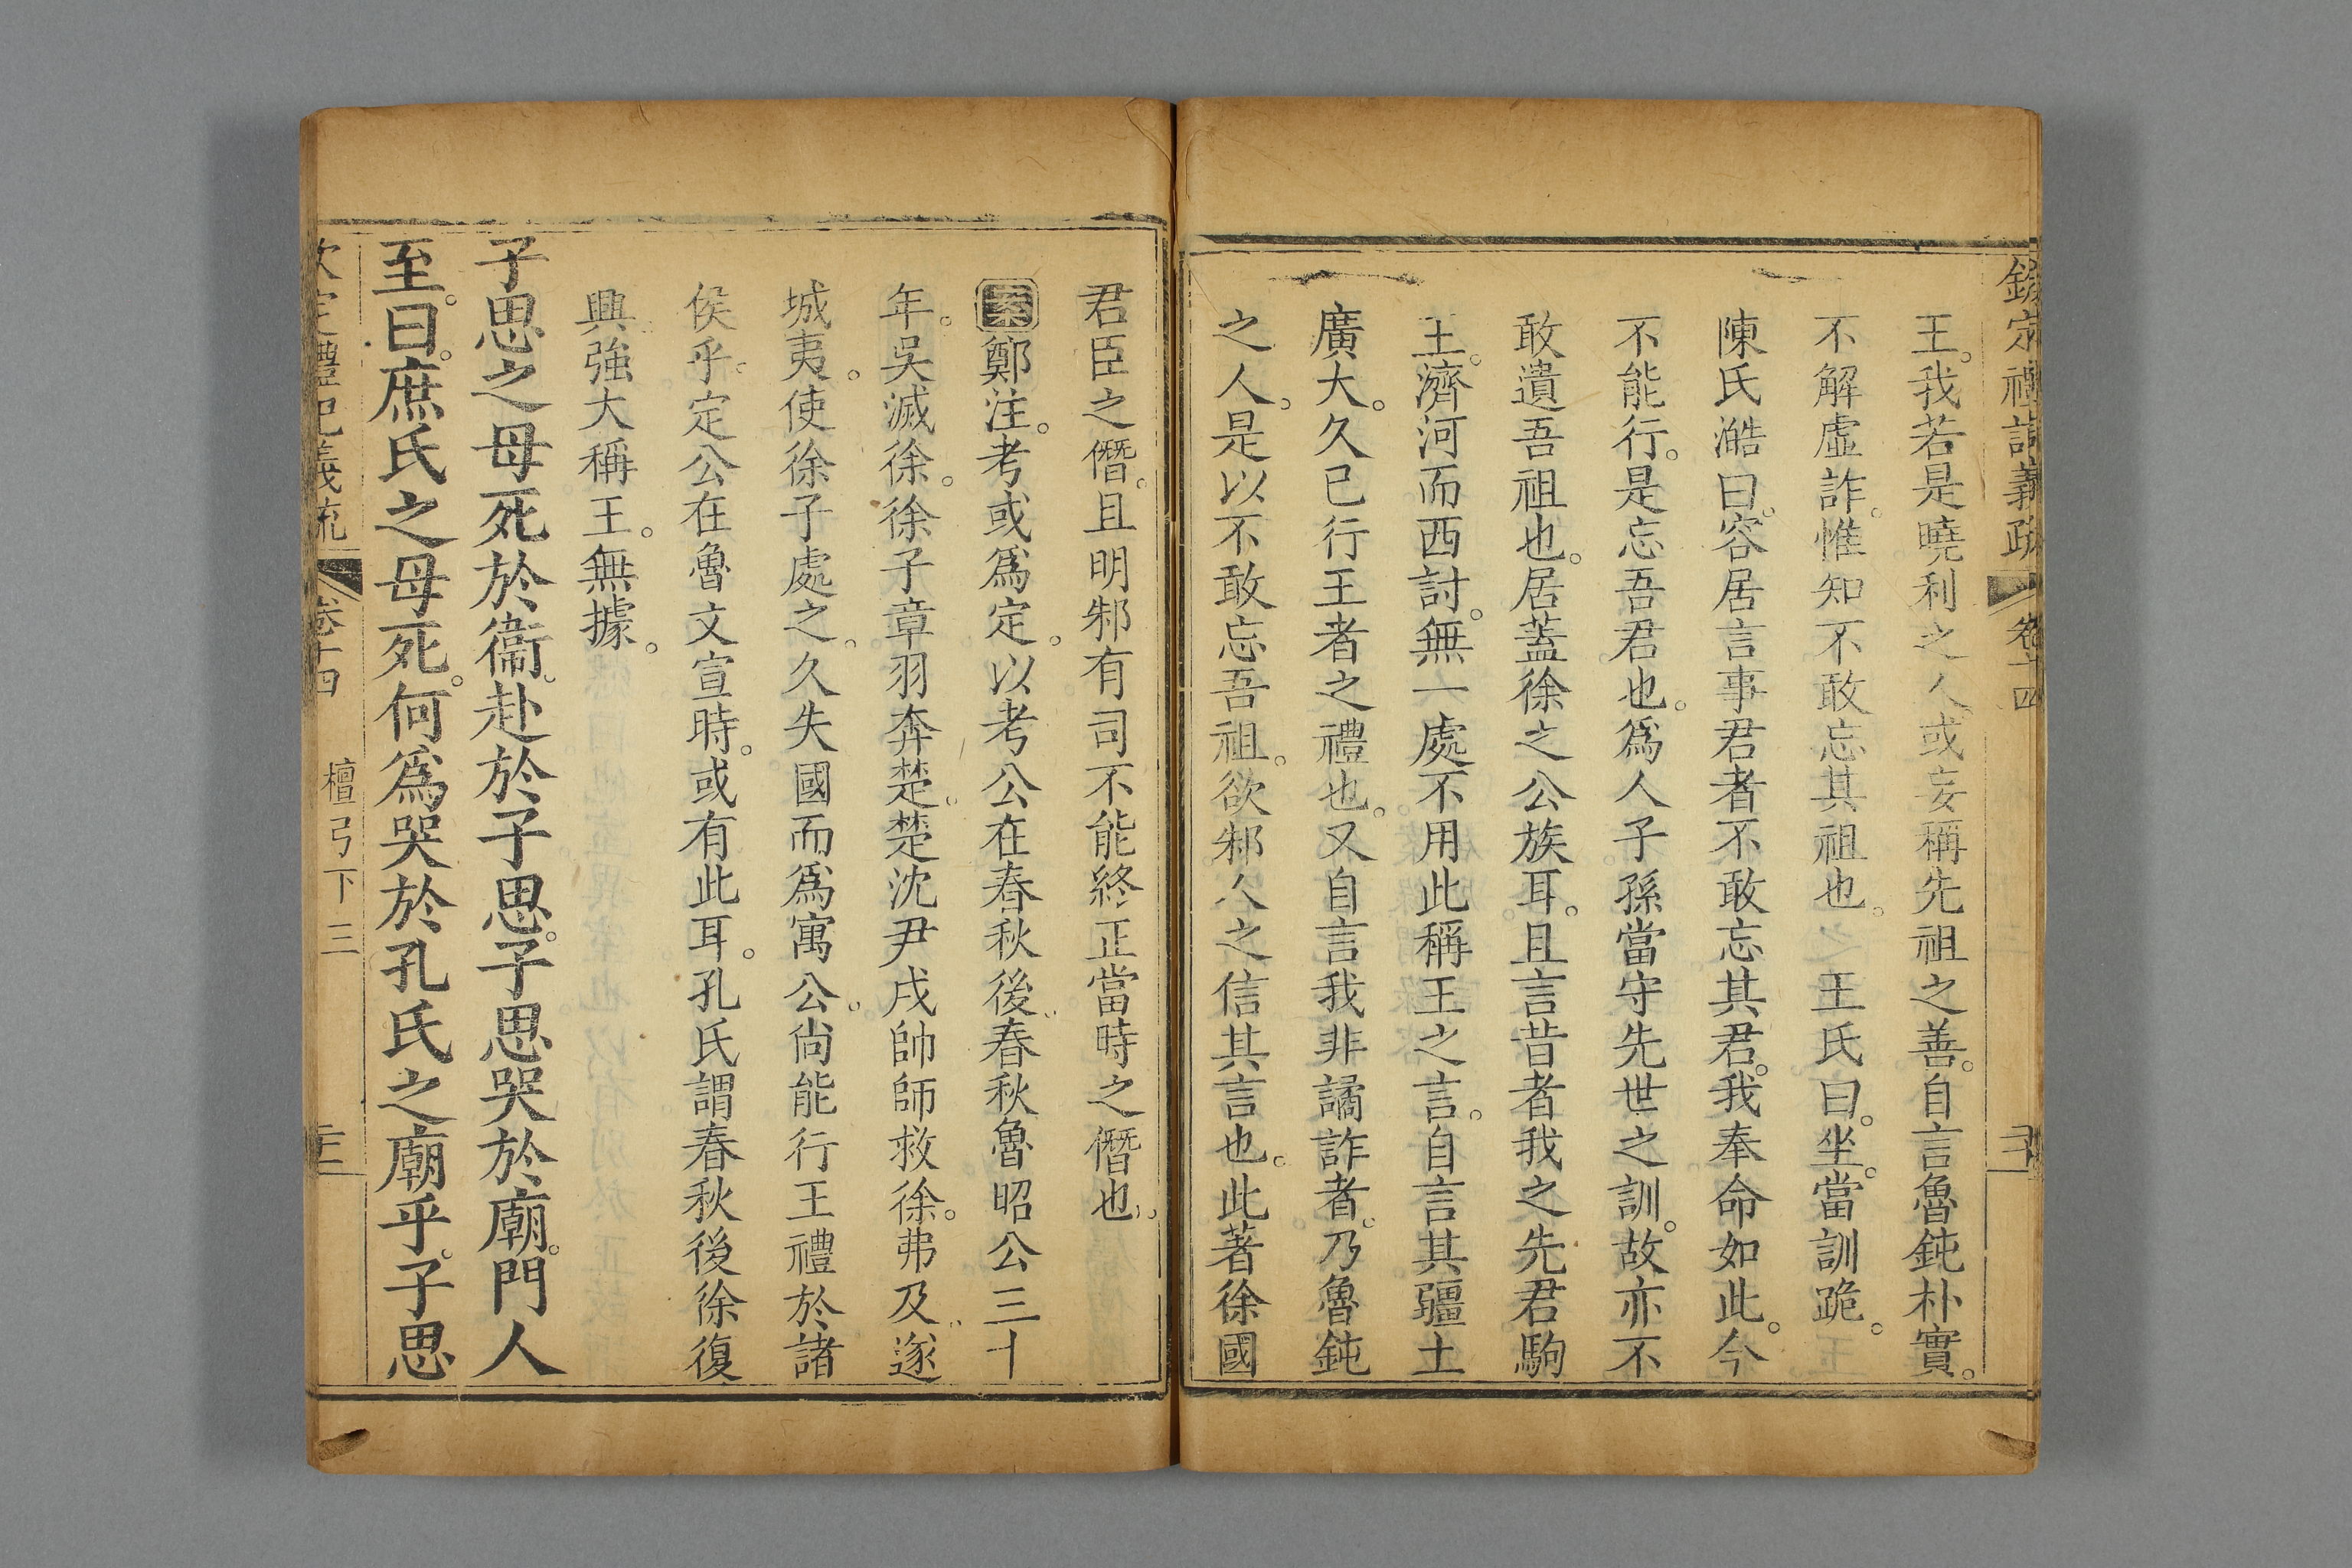 欽定禮記義疏 卷十四
王。我若是曉利之人或妄稱先祖之善。自言魯鈍朴實。
不解虛詐。惟知不敢忘其祖也。 王氏曰。坐。當訓跪。
陳氏澔曰。容居言事君者不敢忘其君。我奉命如此。今
不能行。是忘吾君也。爲人子孫當守先世之訓。故亦不
敢遺吾祖也。居蓋徐之公族耳。且言昔者我之先君駒
王。濟河而西討。無一處不用此稱王之言。自言其疆土
廣大。久已行王者之禮也。又自言我非譎詐者。乃魯鈍
之人。是以不敢忘吾祖。欲邾人之信其言也。此著徐國
君臣之僭。且明邾有司不能終正當時之僭也。
案鄭注。考或爲定。以考公在春秋後。春秋魯昭公三十
年。吳滅徐。徐子章羽奔楚。楚沈尹戌帥師救徐。弗及。遂
城夷。使徐子處之。久失國而爲寓公。尚能行王禮於諸
侯乎。定公在魯文宣時。或有此耳。孔氏謂春秋後徐復
興。強大稱王。無據。
子思之母死於衞。赴於子思。子思哭於廟。門人
至。曰。庶氏之母死。何爲哭於孔氏之廟乎。子思
欽定禮記義疏 卷十四 檀弓下三